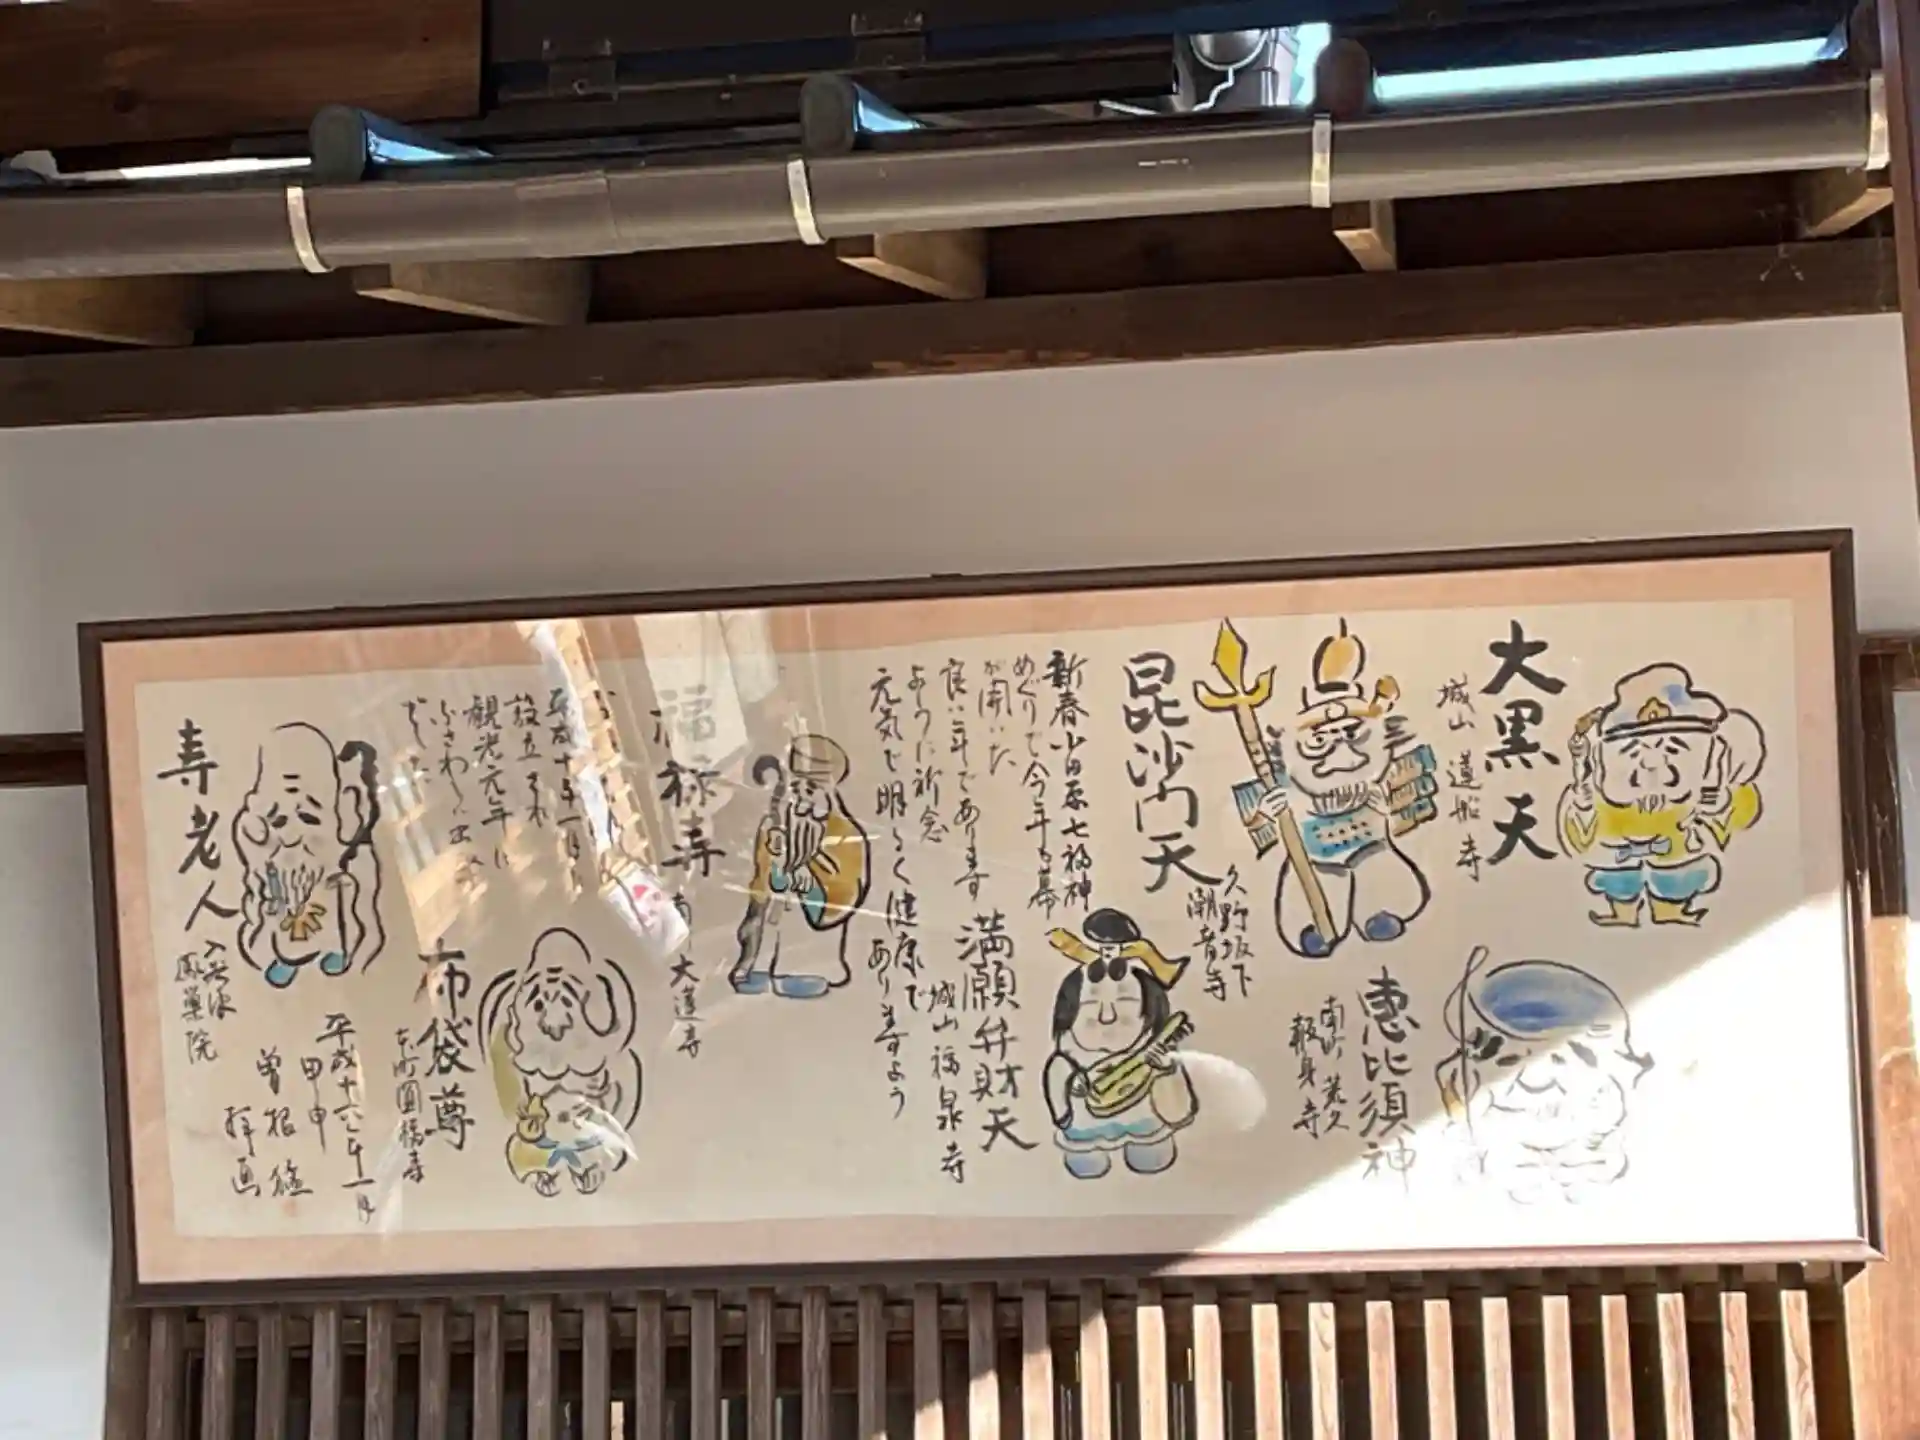 大黒天
城山 蓮船寺
恵比須神
南町 荒久
報身寺
毘沙門天
久野坂下
潮音寺
新春小田原七福神
めぐりで今年も幕
が開いた
良い年であります
ように祈念
元気で明るく健康で
ありますよう
満願弁財天
城山 福泉寺
福禄寿
南 大蓮寺
平成十年一月
設立され
観光元年に
ふさわしい
布袋尊
本町 圓福寺
寿老人
鳳巣院
平成十六年一月
甲申
曽根
拝画